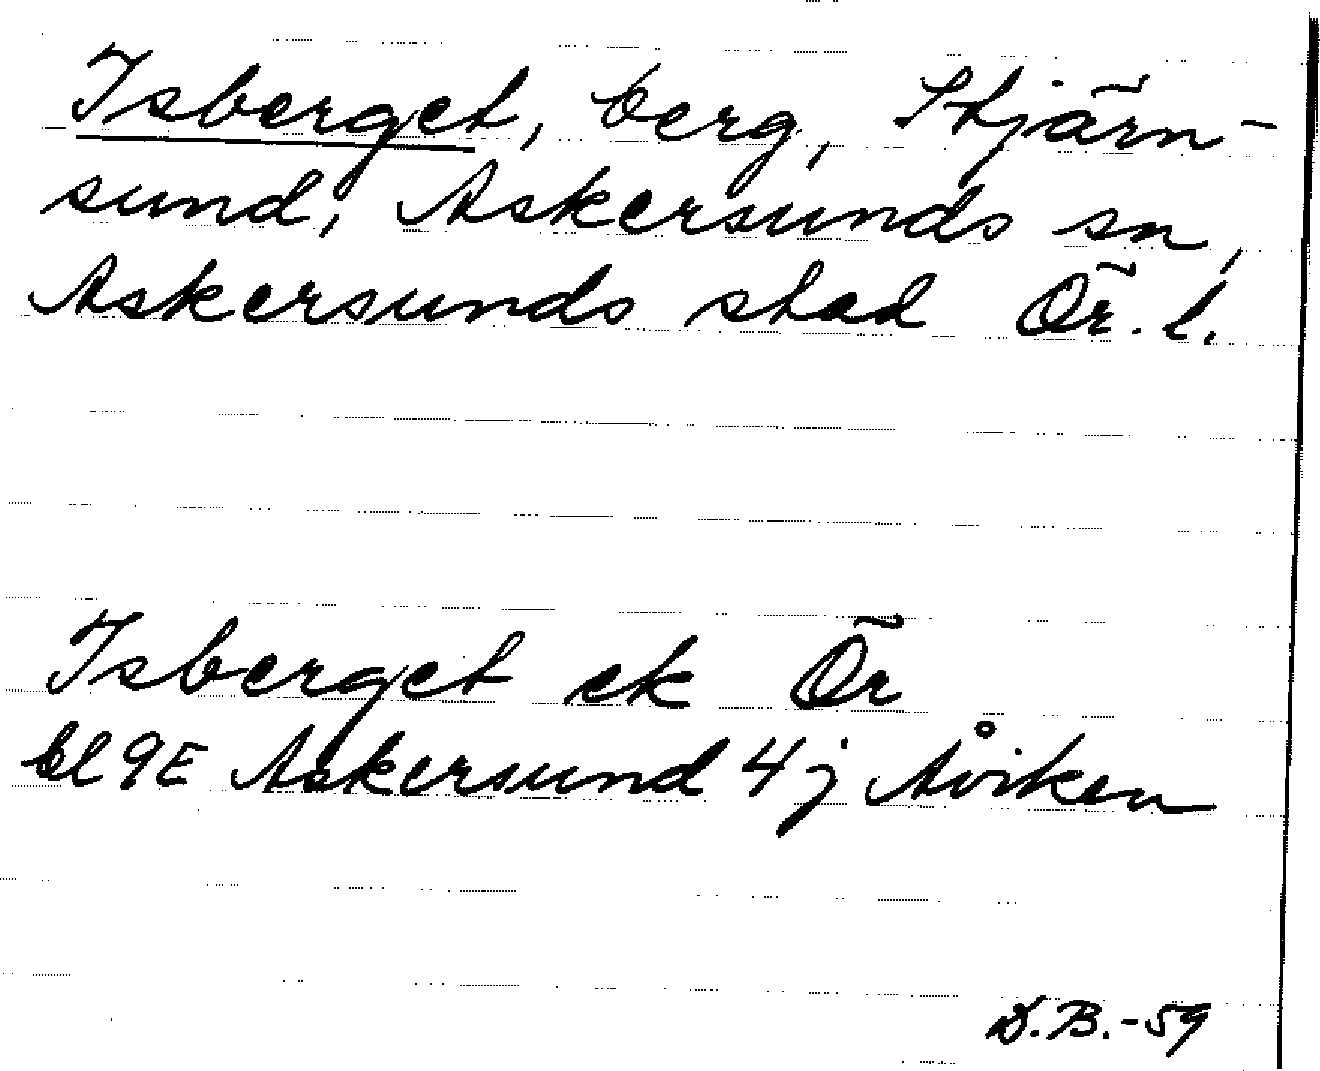 Isberget, berg, Stjärn-
sund, Askersunds sn,
Askersunds stad Ör. l.
Isberget ek Ör
bl 9E Askersund 4j Åviken
D.B.-59